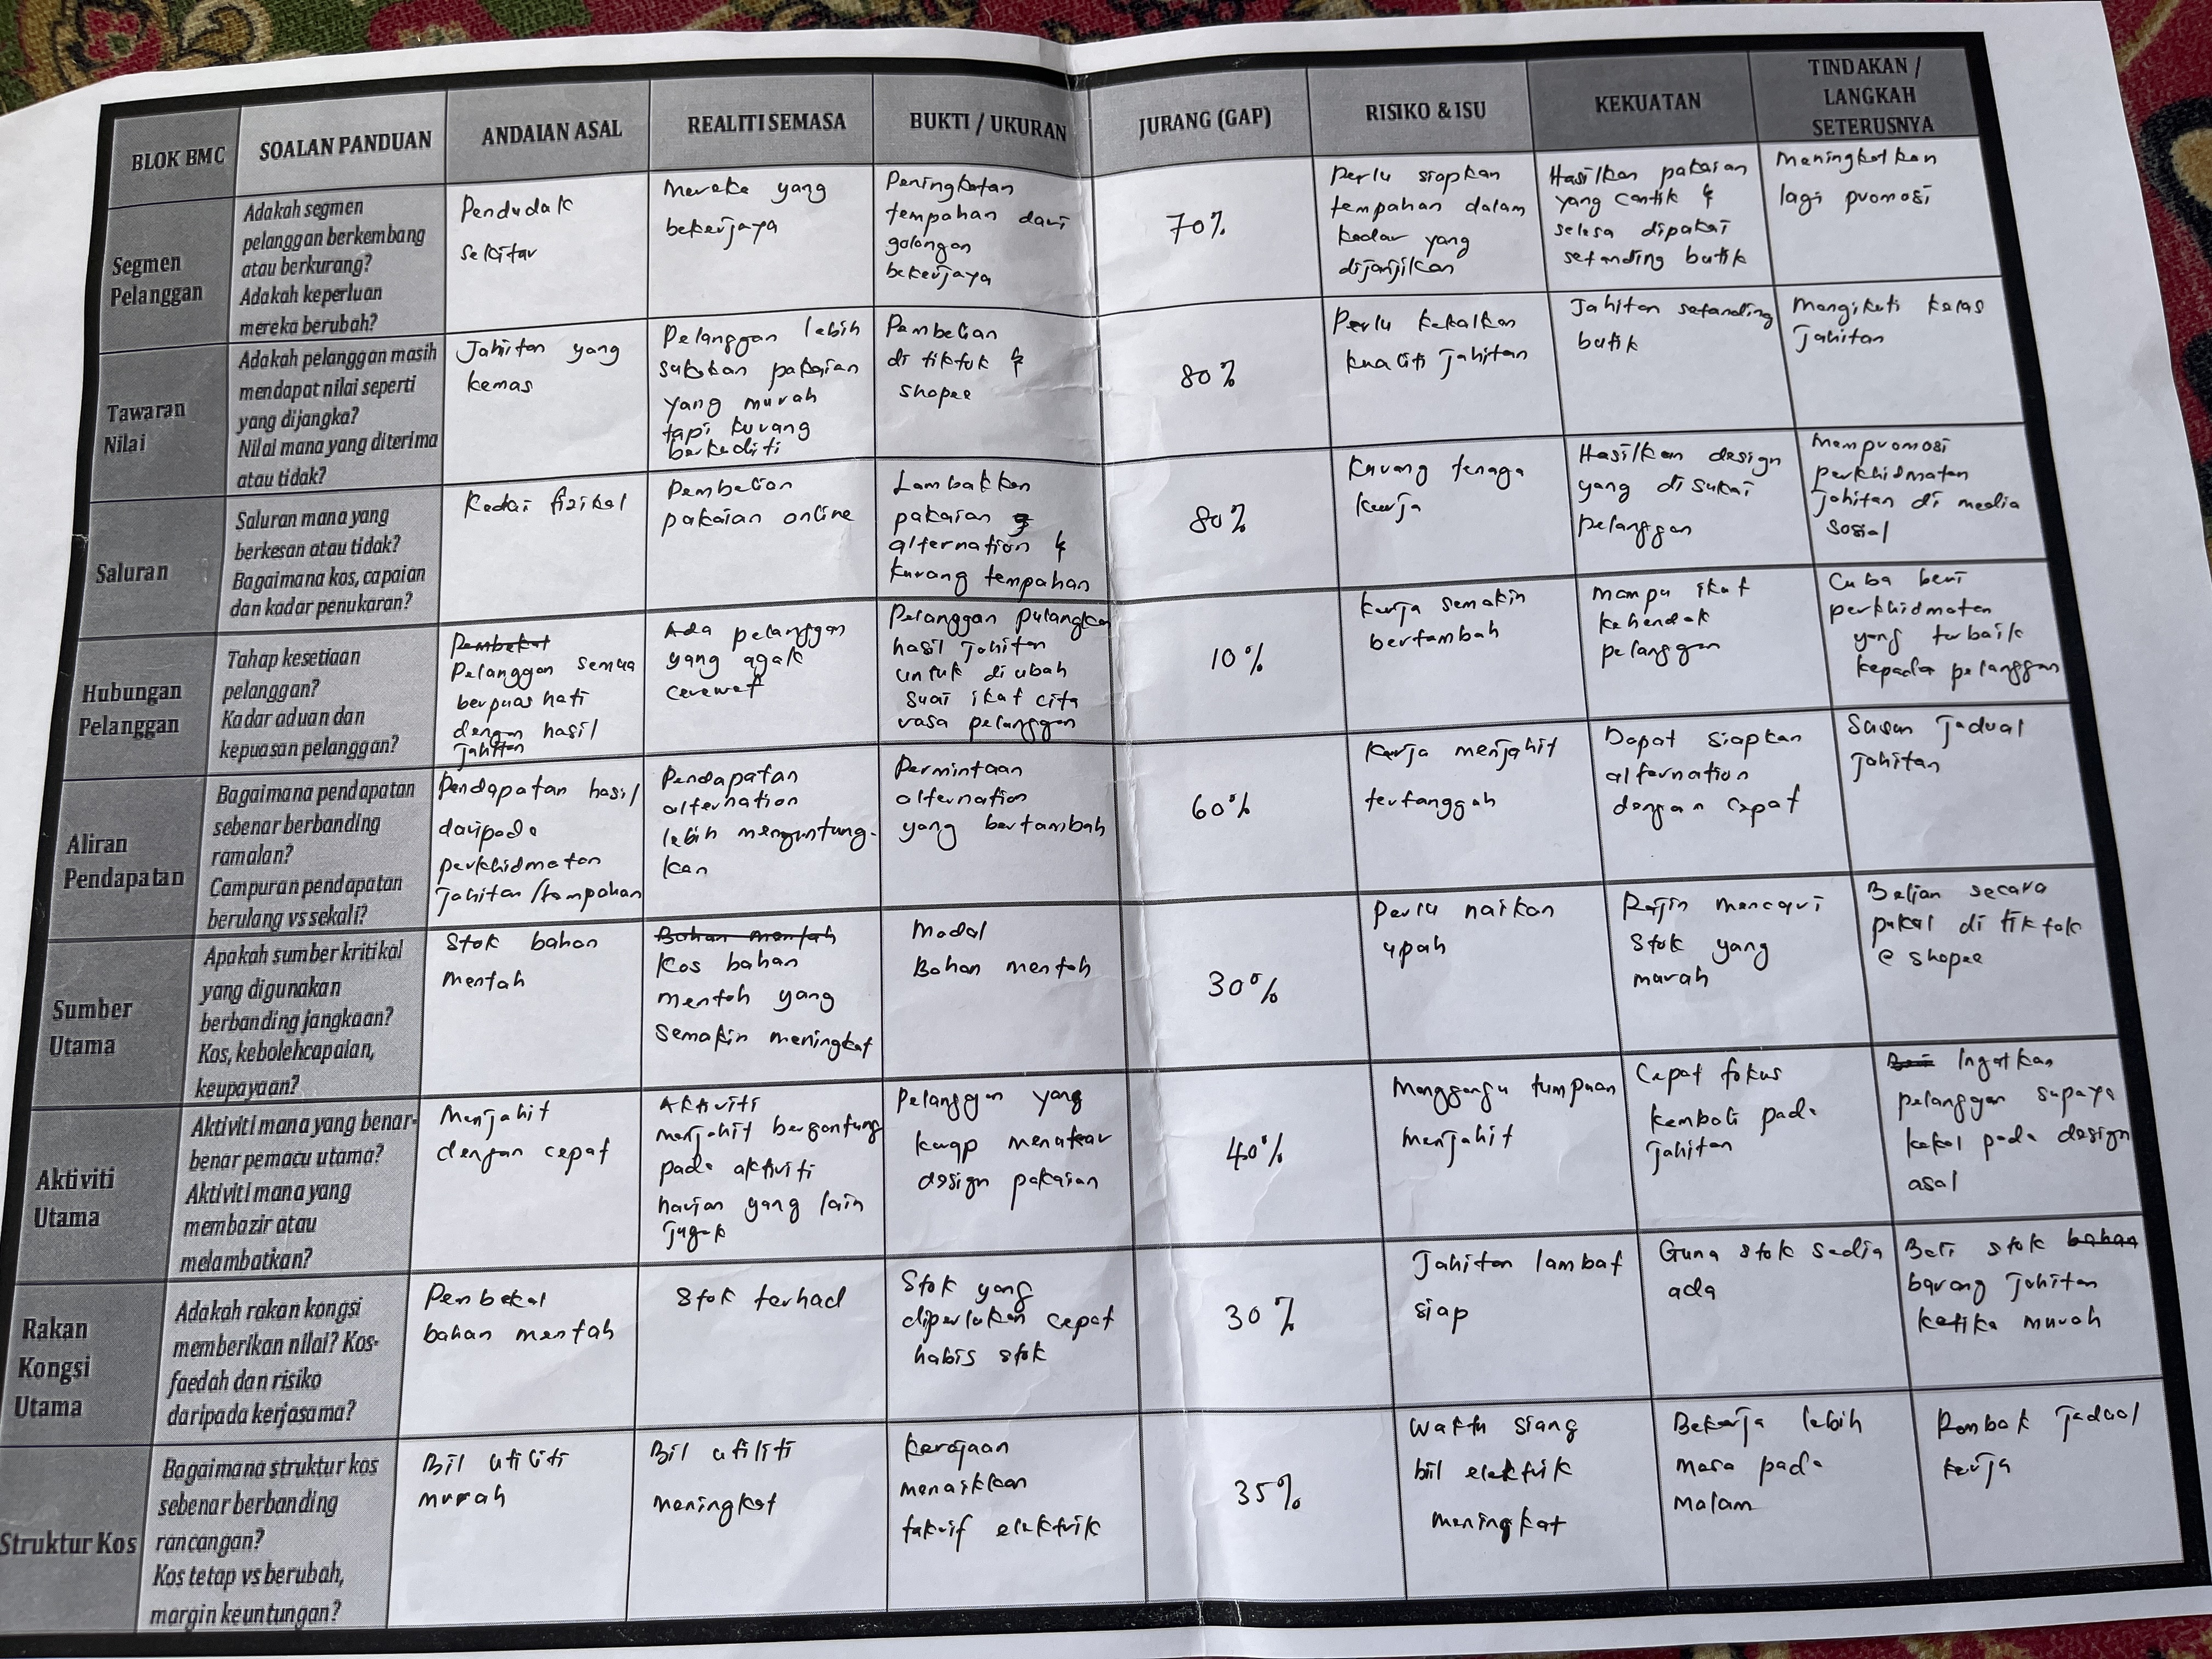 BLOK BMC
SOALAN PANDUAN
ANDAIAN ASAL
REALITI SEMASA
BUKTI / UKURAN
JURANG (GAP)
RISIKO & ISU
KEKUATAN
TINDAKAN /
LANGKAH
SETERUSNYA
Segmen
Pelanggan
Adakah segmen
pelanggan berkembang
atau berkurang?
Adakah keperluan
mereka berubah?
Penduduk
sekitar
Mereka yang
bekerjaya
Peningkatan
tempahan dari
golongan
bekerjaya
70%
Perlu siapkan
tempahan dalam
kadar yang
dijanjikan
Hasilkan pakaian
yang cantik &
selesa dipakai
setanding butik
Meningkatkan
lagi promosi
Tawaran
Nilai
Adakah pelanggan masih
mendapat nilai seperti
yang dijangka?
Nilai mana yang diterima
atau tidak?
Jahitan yang
kemas
Pelanggan lebih
sukakan pakaian
yang murah
tapi kurang
berkualiti
Pembelian
di tiktok &
shopee
80%
Perlu kekalkan
kualiti jahitan
Jahitan setanding
butik
Mengikuti kelas
jahitan
Saluran
Saluran mana yang
berkesan atau tidak?
Bagaimana kos, capaian
dan kadar penukaran?
Kedai fizikal
Pembelian
pakaian online
Lambakkan
pakaian
alternation &
kurang tempahan
80%
Kurang tenaga
kerja
Hasilkan design
yang disukai
pelanggan
Mempromosi
perkhidmatan
jahitan di media
sosial
Hubungan
Pelanggan
Tahap kesetiaan
pelanggan?
Kadar aduan dan
kepuasan pelanggan?
Pembekal
Pelanggan semua
berpuas hati
dengan hasil
jahitan
Ada pelanggan
yang agak
cerewet
Pelanggan pulangkan
hasil jahitan
untuk diubah
suai ikut cita
rasa pelanggan
10%
Kerja semakin
bertambah
Mampu ikut
kehendak
pelanggan
Cuba beri
perkhidmatan
yang terbaik
kepada pelanggan
Aliran
Pendapatan
Bagaimana pendapatan
sebenar berbanding
ramalan?
Campuran pendapatan
berulang vs sekali?
Pendapatan hasil
daripada
perkhidmatan
jahitan/tempahan
Pendapatan
alternation
lebih menguntung-
kan
Permintaan
alternation
yang bertambah
60%
Kerja menjahit
tertangguh
Dapat siapkan
alternation
dengan cepat
Susun jadual
jahitan
Sumber
Utama
Apakah sumber kritikal
yang digunakan
berbanding jangkaan?
Kos, kebolehcapaian,
keupayaan?
Stok bahan
mentah
Bahan mentah
Kos bahan
mentah yang
semakin meningkat
Modal
Bahan mentah
30%
Perlu naikan
upah
Rajin mencari
stok yang
murah
Belian secara
pukal di tiktok
@ shopee
Aktiviti
Utama
Aktiviti mana yang benar-
benar pemacu utama?
Aktiviti mana yang
membazir atau
melambatkan?
Menjahit
dengan cepat
Aktiviti
menjahit bergantung
pada aktiviti
harian yang lain
juga
Pelanggan yang
kerap menukar
design pakaian
40%
Mengganggu tumpuan
menjahit
Cepat fokus
kembali pada
jahitan
Ingatkan
pelanggan supaya
kekal pada design
asal
Rakan
Kongsi
Utama
Adakah rakan kongsi
memberikan nilai? Kos-
faedah dan risiko
daripada kerjasama?
Pembekal
bahan mentah
Stok terhad
Stok yang
diperlukan cepat
habis stok
30%
Jahitan lambat
siap
Guna stok sedia
ada
Beli stok bahan
barang jahitan
ketika murah
Struktur Kos
Bagaimana struktur kos
sebenar berbanding
rancangan?
Kos tetap vs berubah,
margin keuntungan?
Bil utiliti
murah
Bil utiliti
meningkat
Kerajaan
menaikkan
takrif elektrik
35%
Waktu siang
bil elektrik
meningkat
Bekerja lebih
masa pada
malam
Rombak jadual
kerja